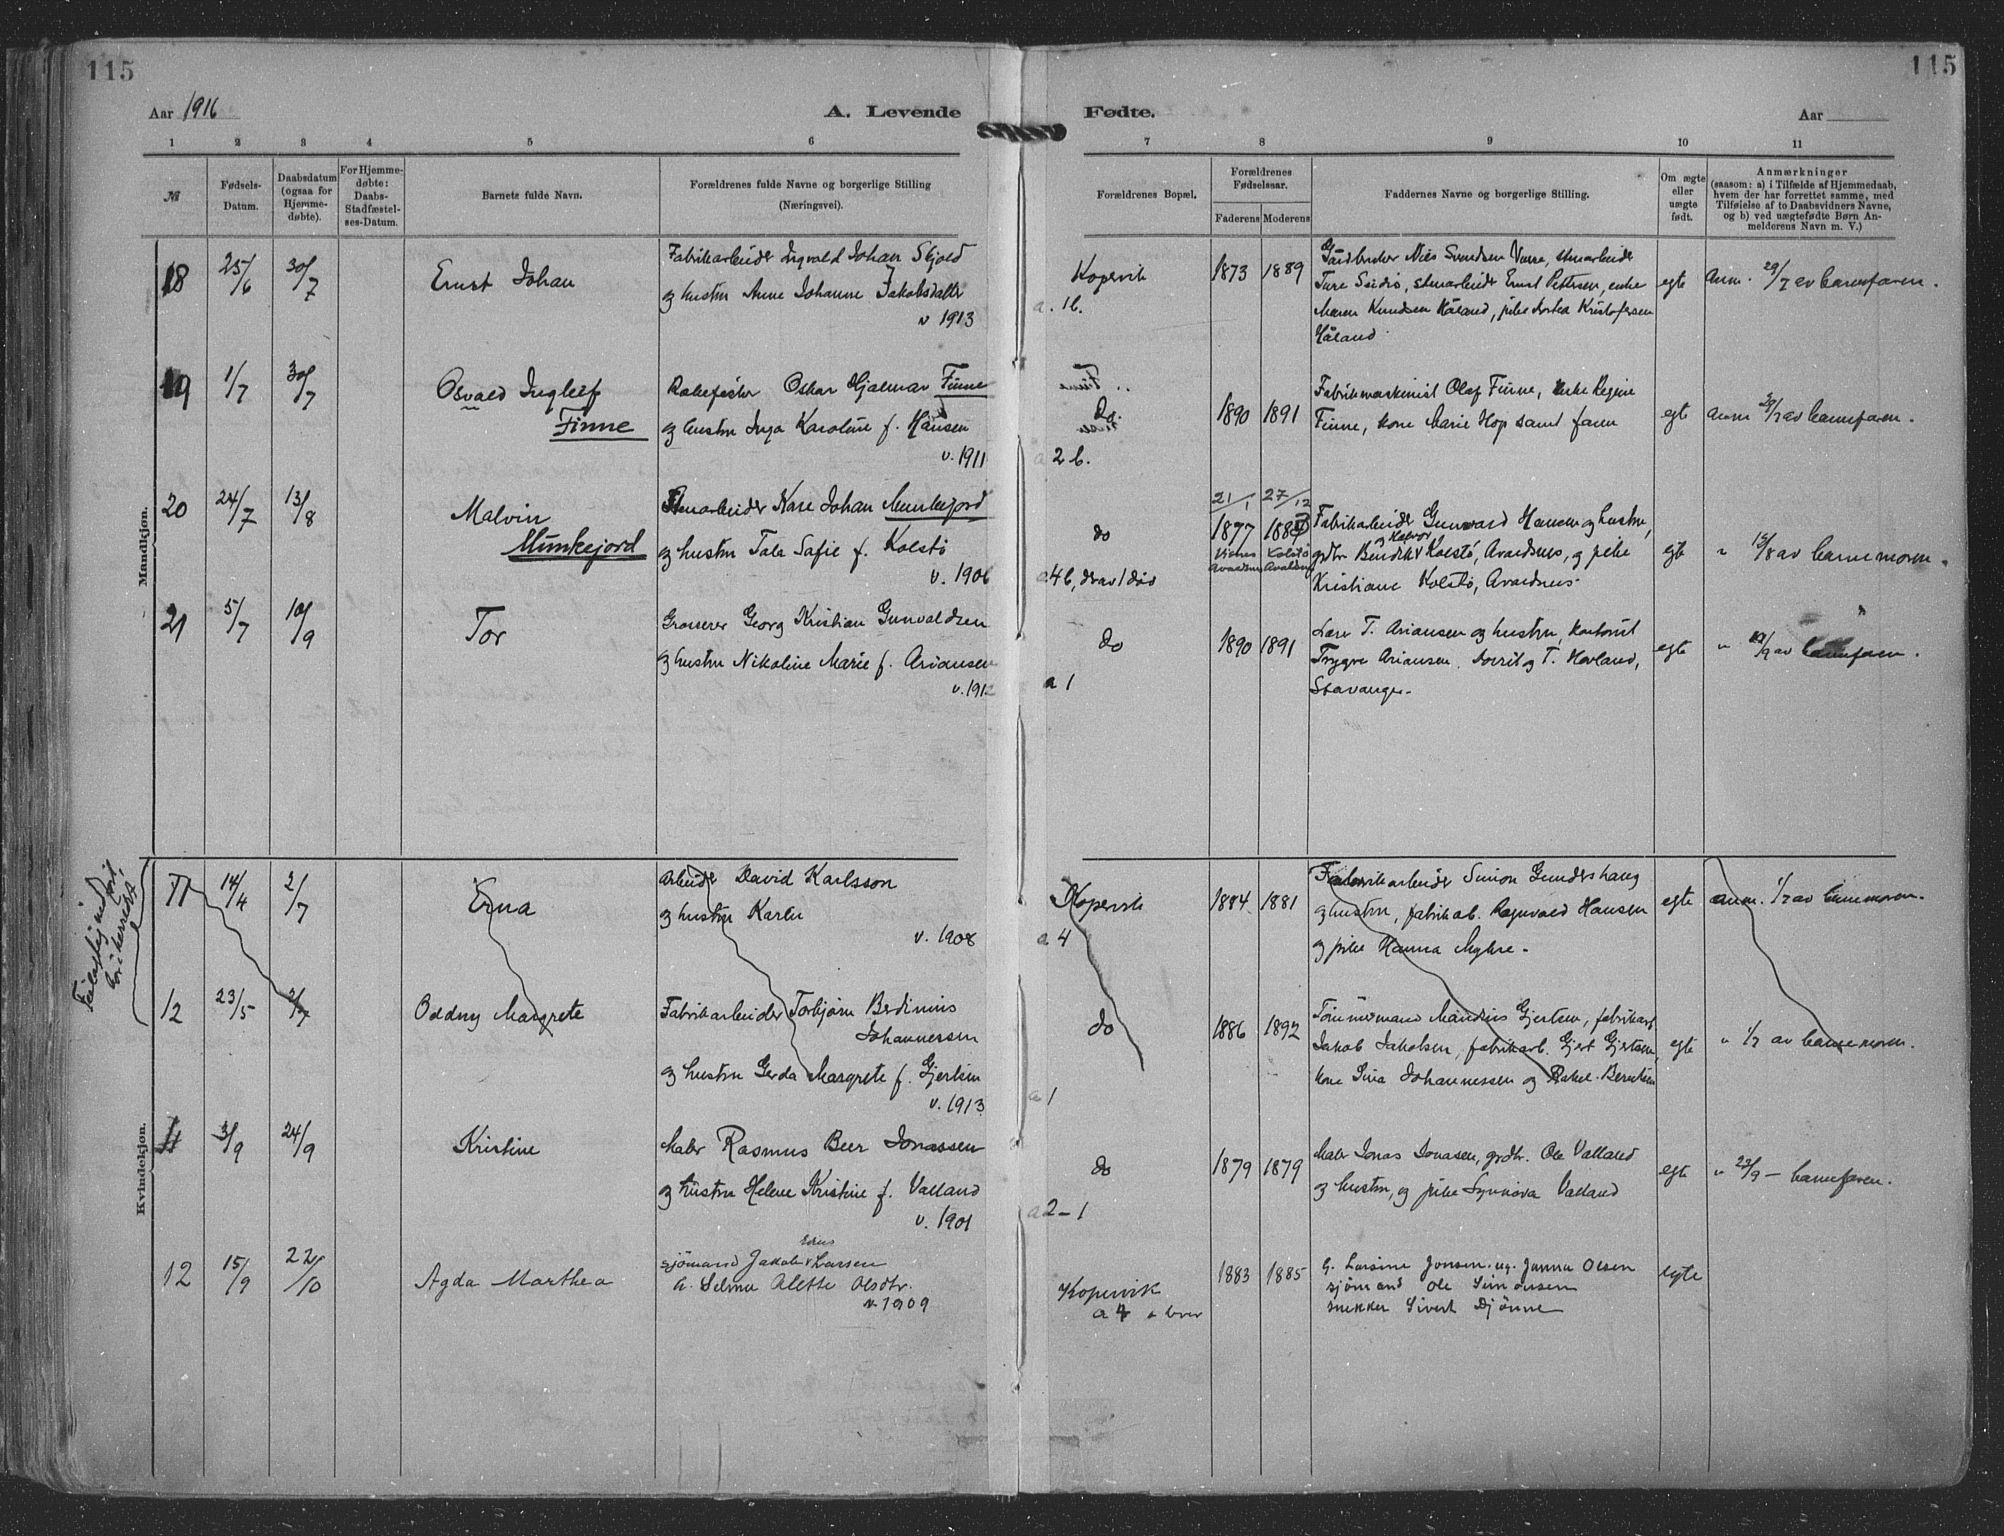 115
115
Aar 1916
A. Levende
Fødte.
Aar
1 2 3 4 5 6
7 8 9 10 11
№
Fødsels-
Datum.
Daabsdatum
(ogsaa for
Hjemme-
døbte).
For Hjemme-
døbte:
Daabs-
Stadfæstel-
ses-Datum.
Barnets fulde Navn.
Forældrenes fulde Navne og borgerlige Stilling
(Næringsvei).
Forældrenes Bopæl.
Forældrenes
Fødselsaar.
Faderens Moderens
Faddernes Navne og borgerlige Stilling.
Om ægte
eller
uægte
født.
Anmærkninger
(saasom: a) i Tilfælde af Hjemmedaab,
hvem der har forrettet samme, med
Tilføielse af to Daabsvidners Navne,
og b) ved uægtefødte Børn An-
melderens Navn m. V.)
Mandkjøn.
18 25/6 30/7 Ernst Johan
Fabrikarbeider Ingvald Johan Skjold
og hustru Anne Johanne Jakobsdatter
v 1913
Kopervik
a. 1b.
1873 1889
Gårdbruker Nils Svendsen Vorre, stenarbeider
Ture Ssidsö, stenarbeider Ernst Pettersen, enke
Maren Knudsen Håland, pike Kristofersen
Håland
egte
anm. 29/7 av barnefaren.
19 1/7 30/7 Osvald Ingleif
Finne
Oskar Hjalmar Finne
og hustru Inga Karoline f. Hansen
v. 1911
Do.
a 2 b.
1890 1891
Fabrikmaskinist Olaf Finne, enke Regine
Finne, kone Marie Hop samt faren
egte
anm 29/7 av barnefaren.
20 24/7 13/8 Malvin
Munkejord
Stenarbeider Kare Johan Munkejord
og hustru Tala Safie f. Kolstö
v. 1906
do
a 4 b, derav 1 död
21/1 27/12
1877 1883
Avaldsn Kolstö Avaldsn
Fabrikarbeider Gunvard Hansen og hustru,
grdbr Bendik Kolstö, Avaldsnes, og pike
Kristiane Kolstö, Avaldsnes.
egte
" 12/8 av barnemoren.
21 5/7 10/9 Tor
Grosserer Georg Kristian Gunvaldsen
og hustru Nikoline Marie f. Ariansen
v. 1912
do
a 1
1890 1891
Lars T. Ariansen og hustru, kontorist
Trygve Ariansen. Dorrit og T. Hovland,
Stavanger.
egte
" 10/9 av barnefaren.
Kvindekjøn.
11 14/4 2/7 Erna
Arbeider David Karlsson
og hustru Karln
v. 1908
Kopervik
a 4
1884 1881
Fabrikarbeider Simon Gundershaug
og hustru, fabrikarb. Ragnvald Hansen
og pike Hanna Myhre.
egte
anm. 1/7 av barnemoren.
12 23/5 2/7 Oddny Margrete
Fabrikarbeider Torbjörn Berdinius
Johannessen
og hustru Gerda Margrete f. Gjertsen
v. 1913
do
a 1
1886 1892
Tömmermand Mandius Gjertsen, fabrikarb.
Jakob Jakobsen, fabrikarb. Gjert Gjertsen,
kone Sina Johannessen og Rakel Berntsen
egte
" 1/7 av barnemoren.
11 3/9 24/9 Kristine
Maler Rasmus Beer Jonassen
og hustru Helene Kristine f. Valland
v. 1901
do
a 2 – 1
1879 1879
Maler Jonas Jonasen, grdbr. Ole Valland
og hustru, og pike Synnöva Valland
egte
" 23/9 – barnefaren.
12 15/9 22/10 Agda Marthea
sjömand Jakob Larsen
o. Selma Alette Olsdtr.
v. 1909
Kopervik
a 4
1883 1885
G. Larsine Jonsen. ug. Janna Olsen
sjömand Ole Simonsen
snekker Sivert Djönne
egte